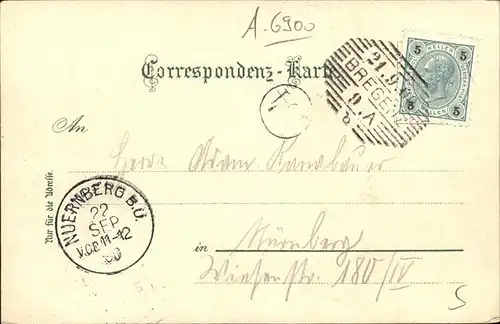 A-6900
Correspondenz-Karte
5 HELLER 5
5 HELLER 5
21.9.
BREGENZ
9.A
An
Herrn Adam
Nur für die Adresse.
NUERNBERG B.Ü.
22
SEP
VOR 11-12
in Nürnberg
Wiesenstr. 180/IV
S